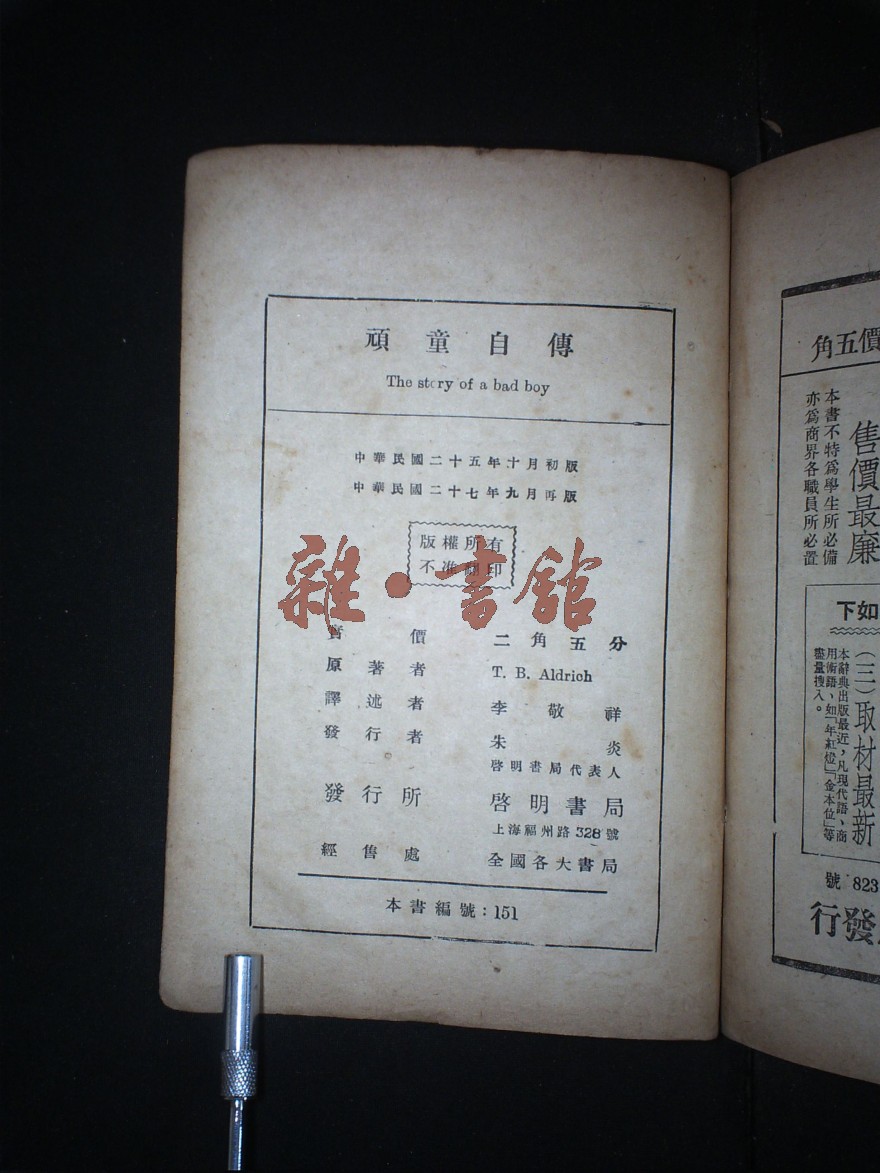 頑童自傳
The story of a bad boy
中華民國二十五年十月初版
中華民國二十七年九月再版
版權所有
不准翻印
雜·書館
實價 二角五分
原著者 T. B. Aldrich
譯述者 李敬祥
發行者 朱炎
啓明書局代表人
發行所 啓明書局
上海福州路 328 號
經售處 全國各大書局
本書編號：151
價五角
本書不特爲學生所必備
亦爲商界各職員所必置
售價最廉
如下
（三）取材最新
本辭典出版最近，凡現代語、商
用術語、如「年紅燈」「金本位」等
盡量搜入。
號 823
發行